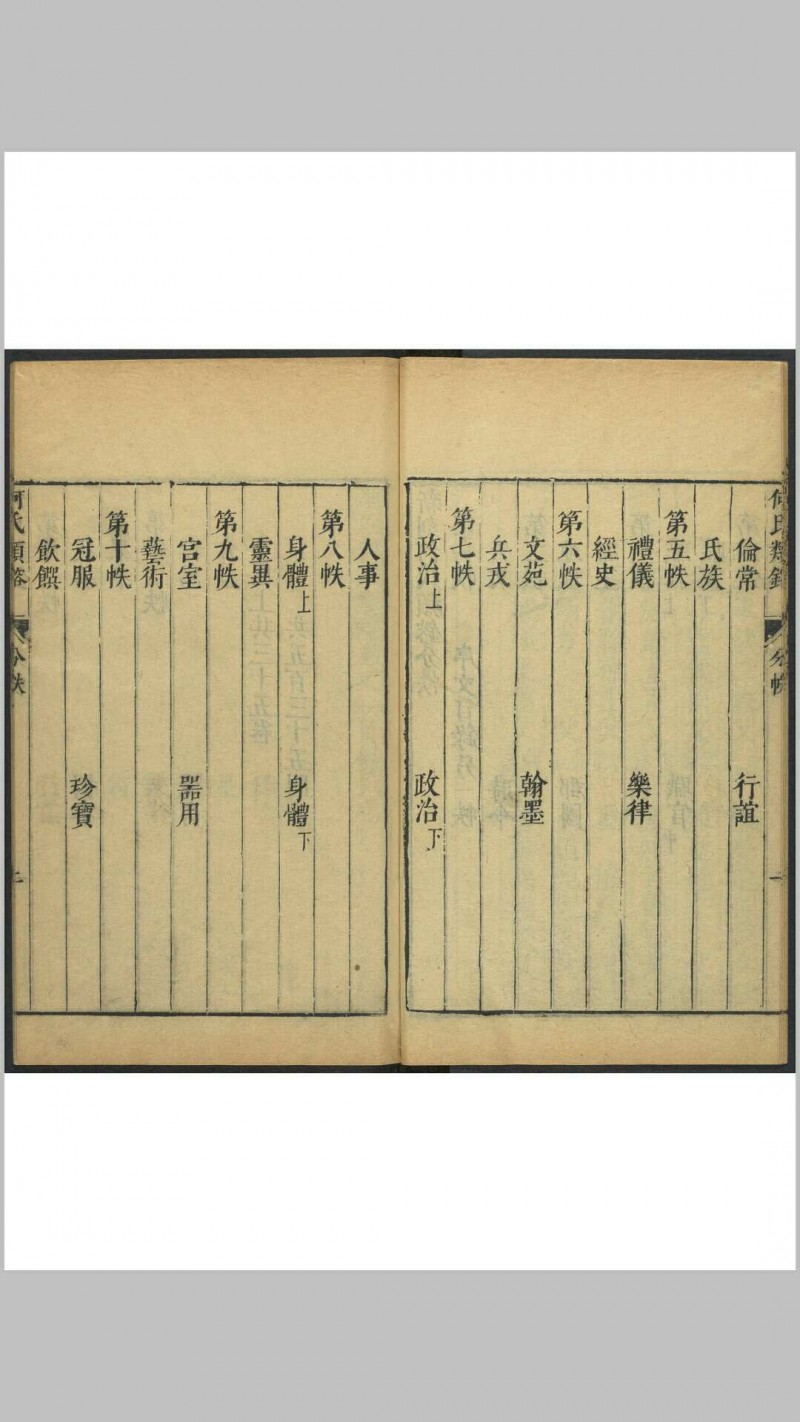 何氏類鎔 分帙 一
倫常 行誼
氏族
第五帙
禮儀 樂律
經史
第六帙
文苑 翰墨
兵戎
第七帙
政治上 政治下
人事
第八帙
身體上 身體下
靈異
第九帙
宮室 器用
藝術
第十帙
冠服 珍寶
飲饌
何氏類鎔 分帙 二